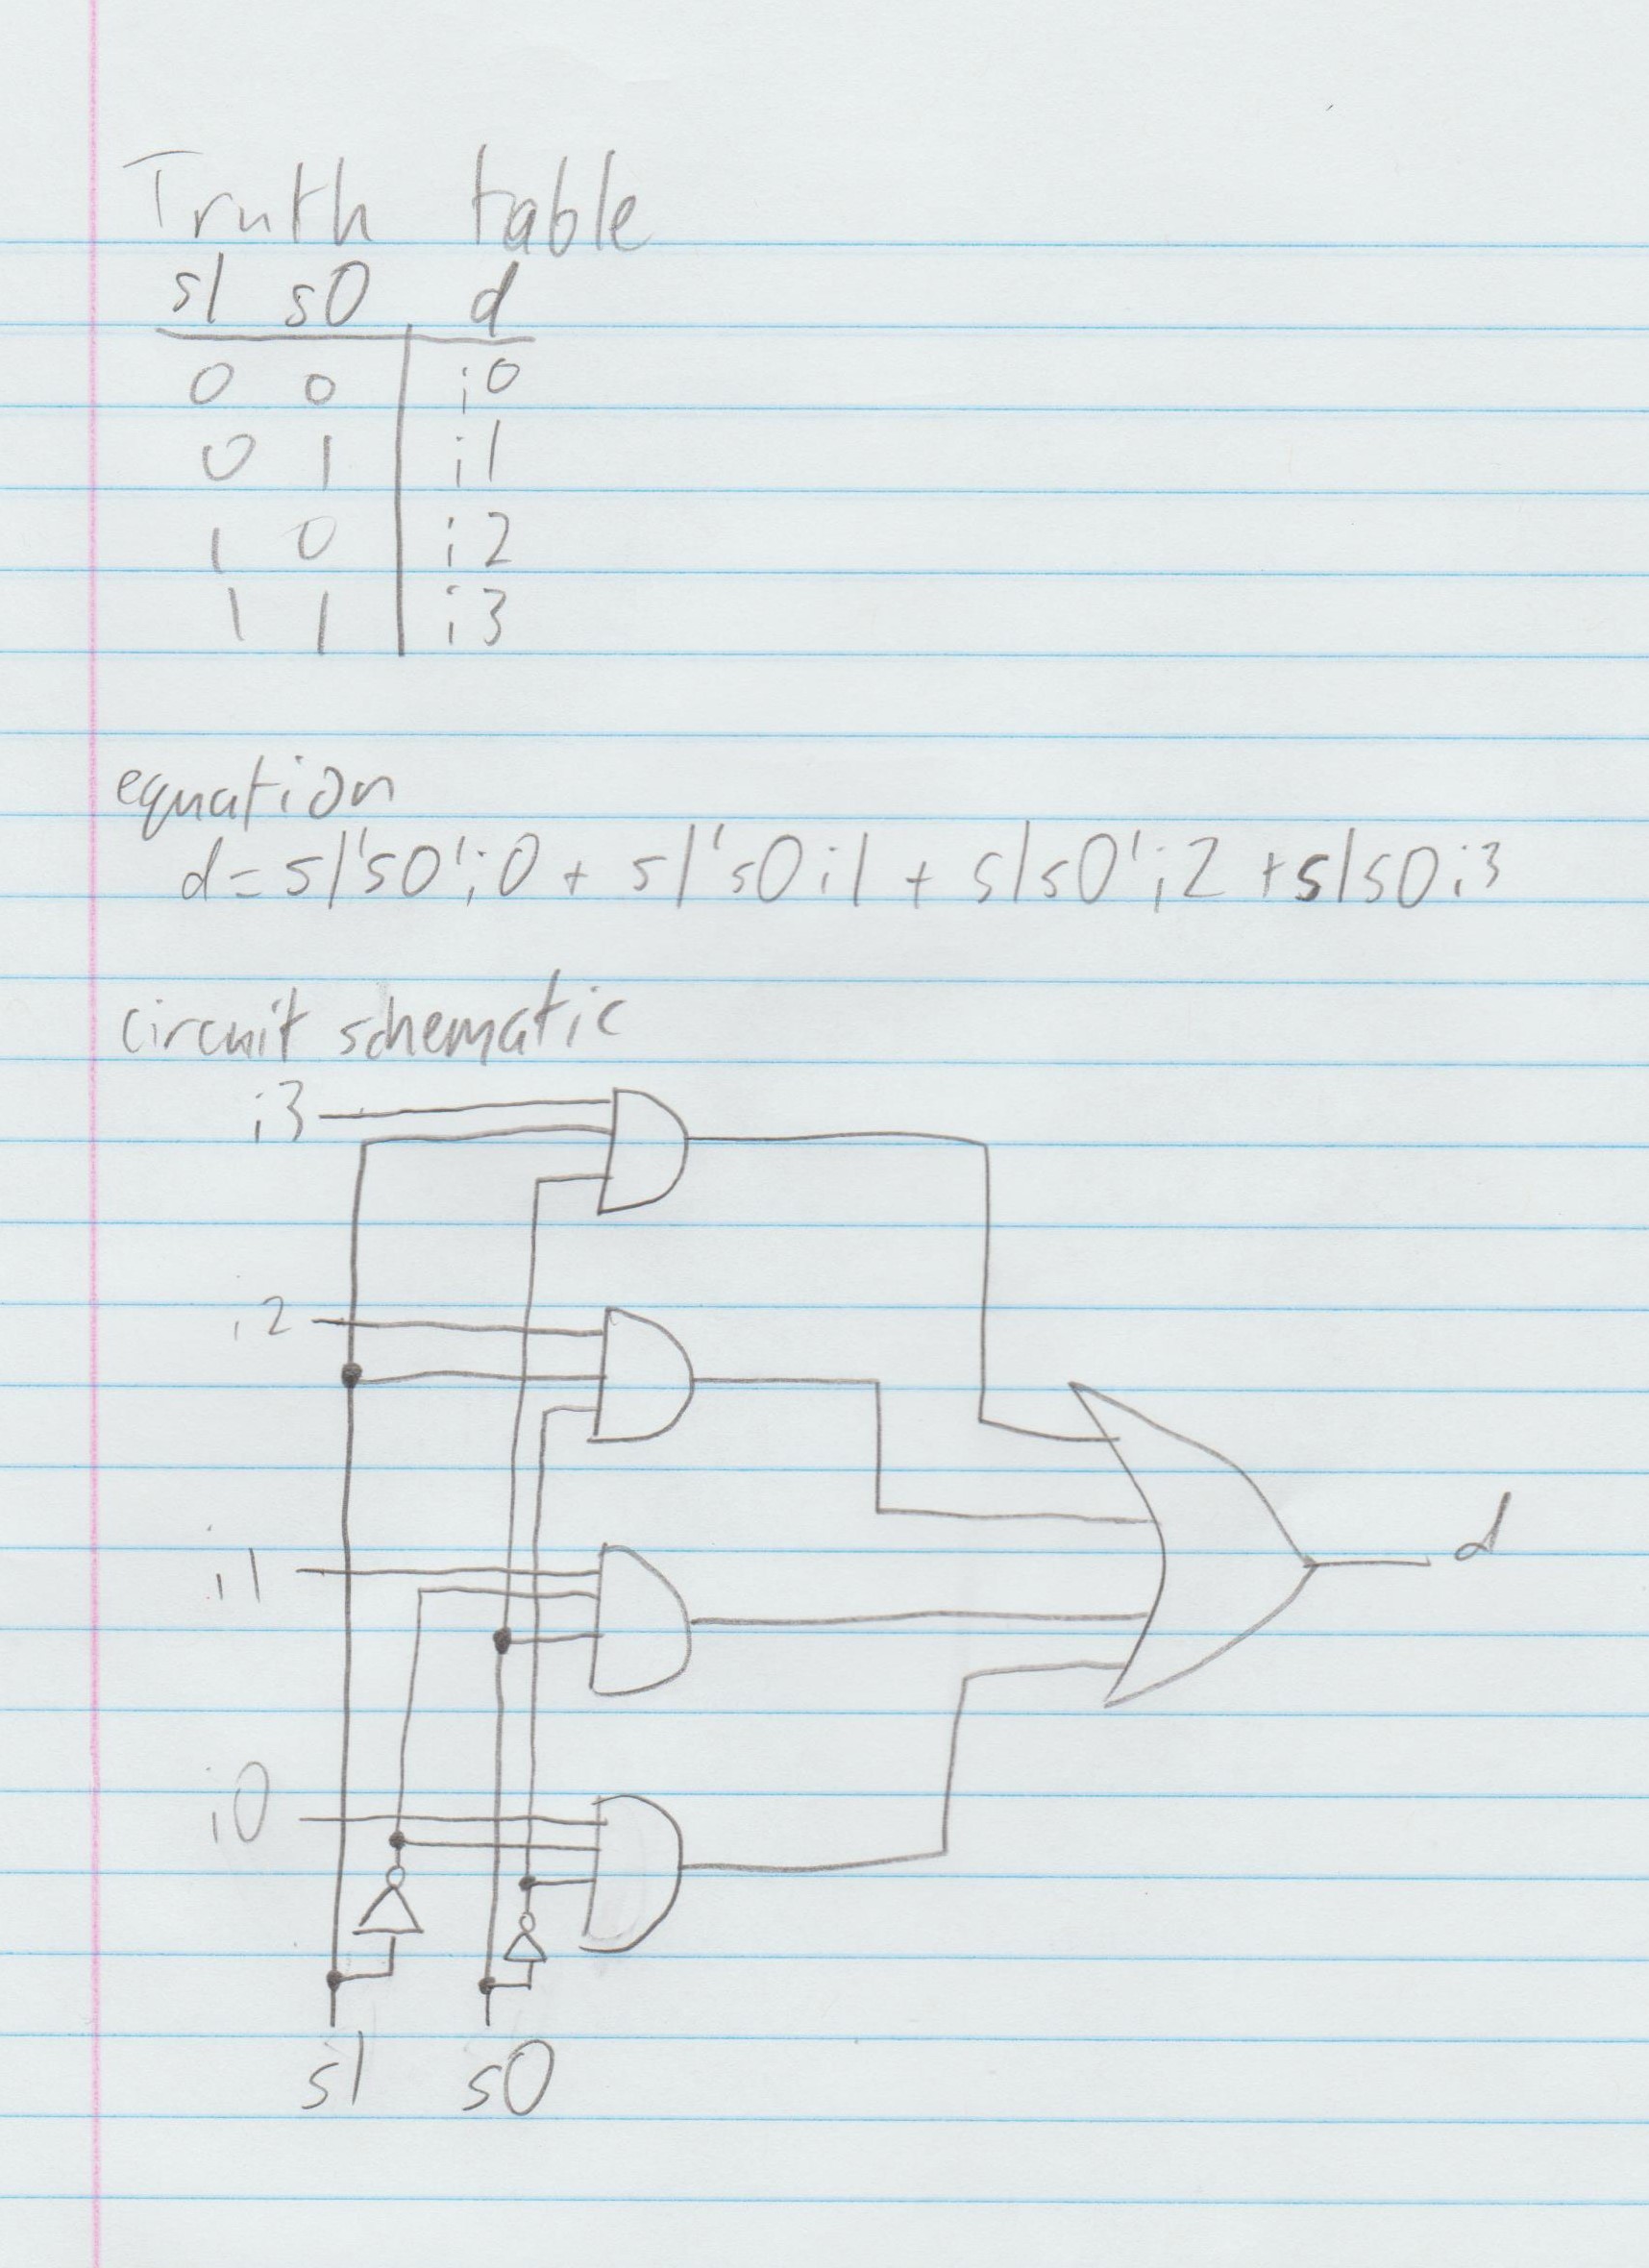 Truth table
s1 s0 d
0 0 i0
0 1 i1
1 0 i2
1 1 i3
equation
d=s1's0'i0 + s1's0i1 + s1s0'i2 + s1s0i3
circuit schematic
i3
i2
d
i1
i0
s1 s0